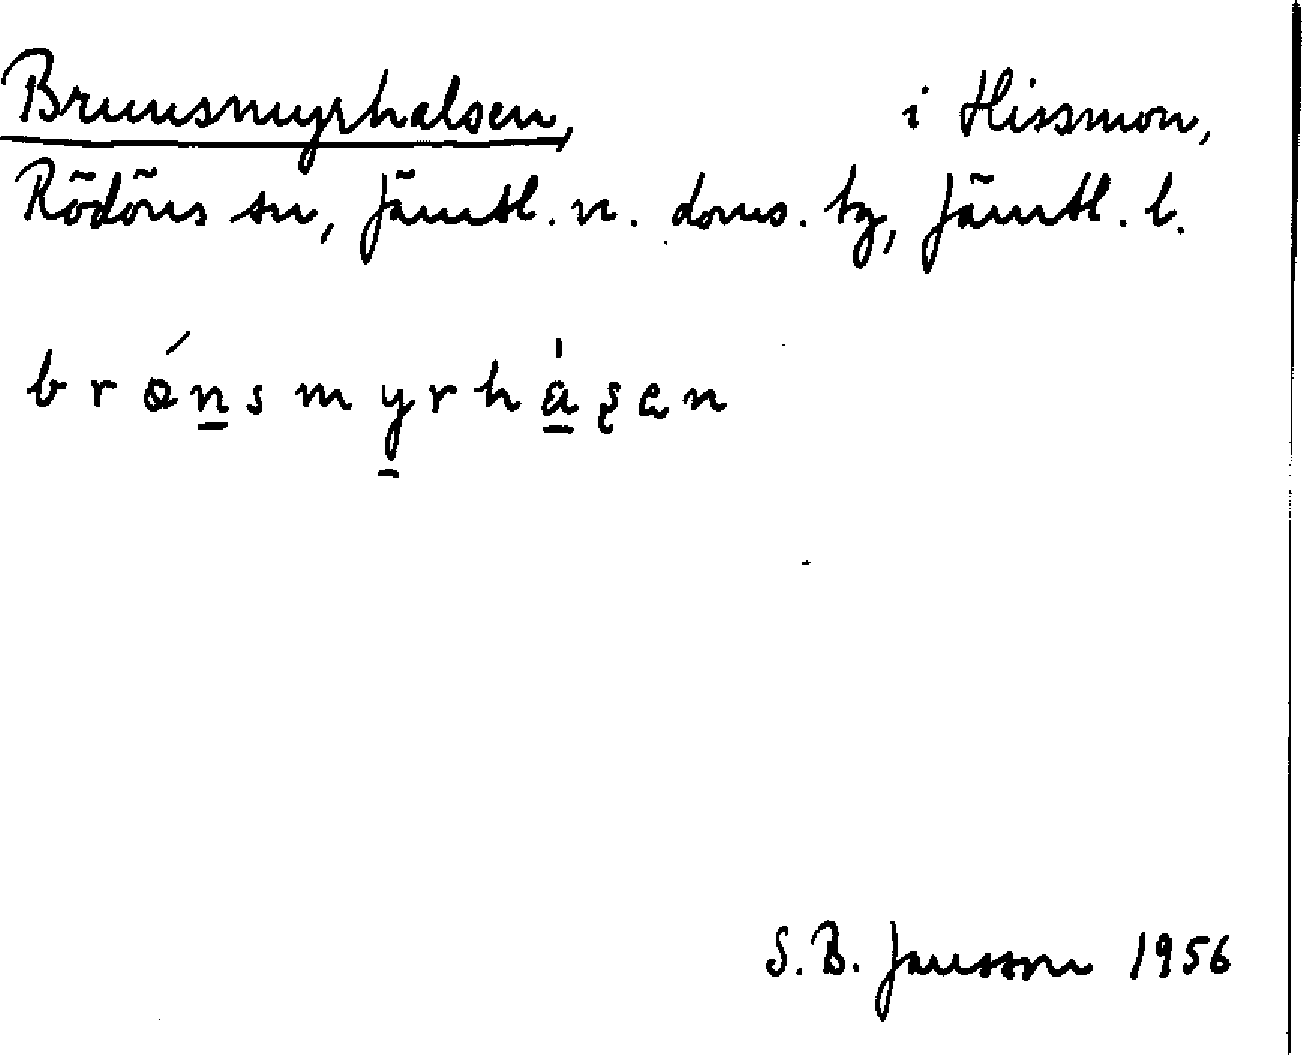 Brunsmyrhalsen, i Hissmon,
Rödöns sn, Jämtl. n. doms. tg, Jämtl. l.
brǿn̲smy̲rhá̲şen
S. B. Jansson 1956